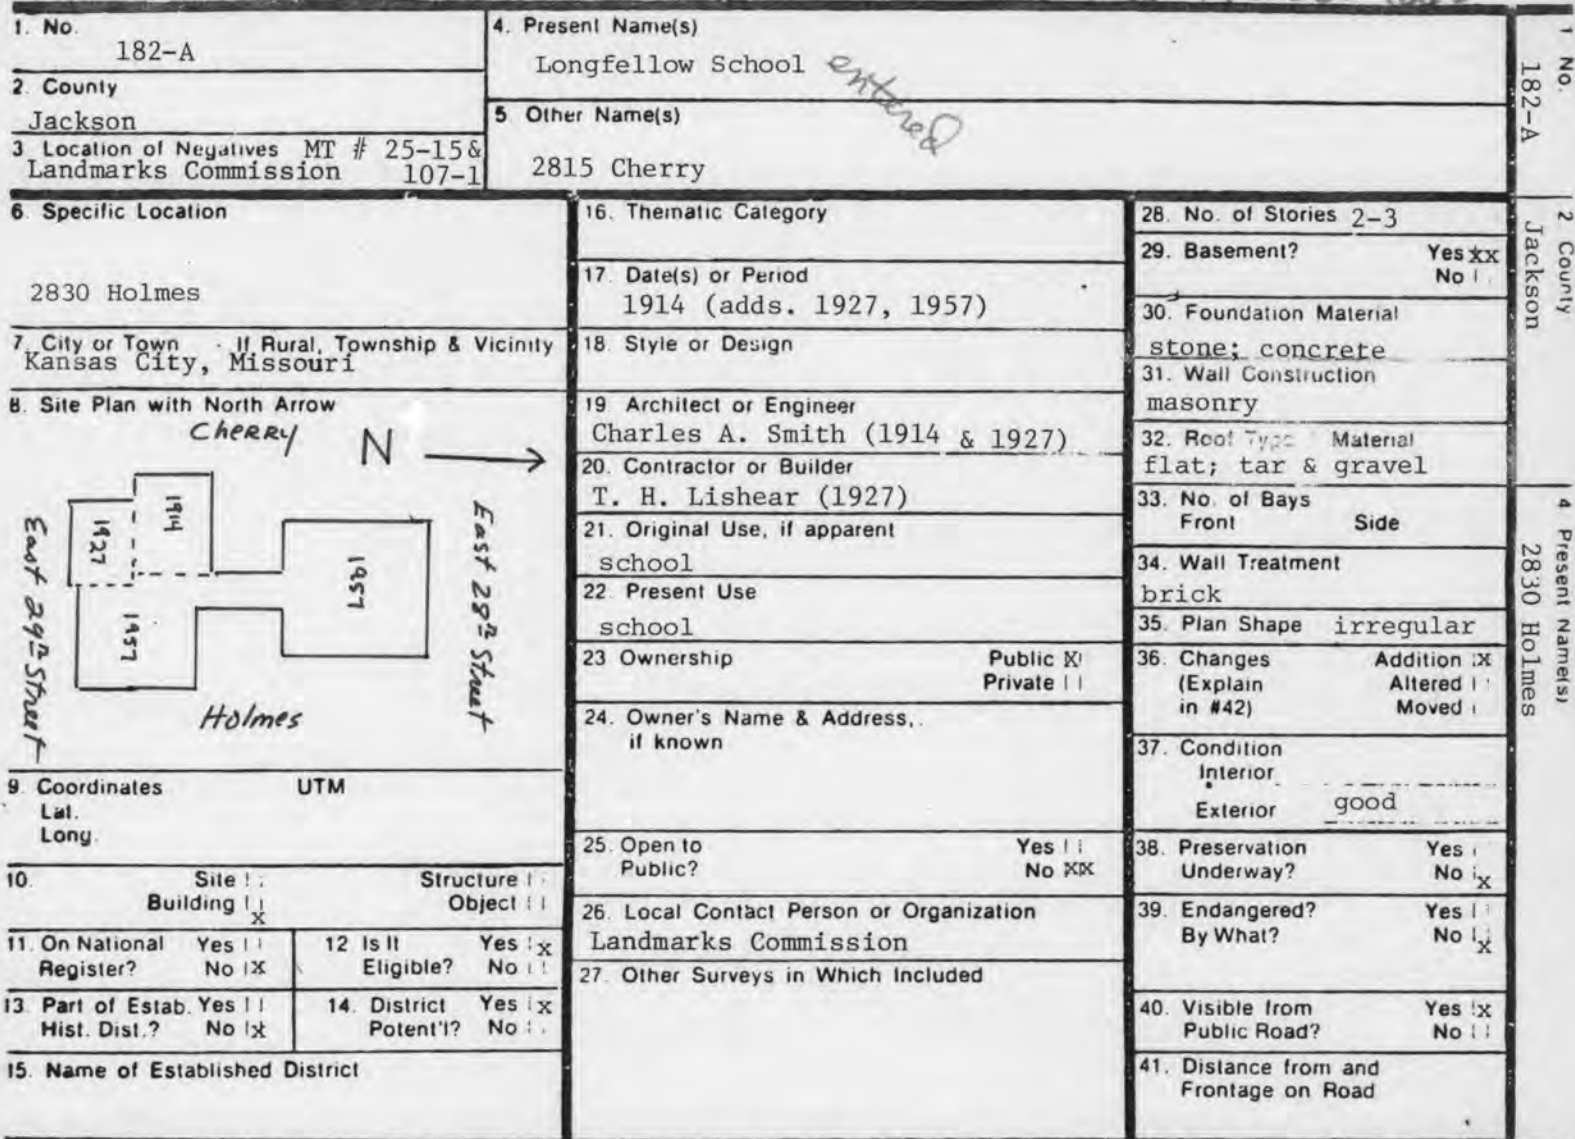 1. No.
182-A
2. County
Jackson
3 Location of Negatives MT # 25-15 &
Landmarks Commission 107-1
4. Present Name(s)
Longfellow School entered
5 Other Name(s)
2815 Cherry
6. Specific Location
2830 Holmes
7. City or Town If Rural, Township & Vicinity
Kansas City, Missouri
8. Site Plan with North Arrow
Cherry
N
1914
1927
1957
1957
East 29th Street
East 28th Street
Holmes
9. Coordinates UTM
Lat.
Long.
10. Site Structure
Building x Object
11. On National Yes
Register? No X
12 Is It Yes x
Eligible? No
13. Part of Estab. Yes
Hist. Dist.? No x
14. District Yes x
Potent'l? No
15. Name of Established District
16. Thematic Category
17. Date(s) or Period
1914 (adds. 1927, 1957)
18. Style or Design
19 Architect or Engineer
Charles A. Smith (1914 & 1927)
20. Contractor or Builder
T. H. Lishear (1927)
21. Original Use, if apparent
school
22. Present Use
school
23 Ownership Public X
Private
24. Owner's Name & Address,
if known
25. Open to Yes
Public? No XX
26. Local Contact Person or Organization
Landmarks Commission
27. Other Surveys in Which Included
28. No. of Stories 2-3
29. Basement? Yes xx
No
30. Foundation Material
stone; concrete
31. Wall Construction
masonry
32. Roof Type Material
flat; tar & gravel
33. No. of Bays
Front Side
34. Wall Treatment
brick
35. Plan Shape irregular
36. Changes Addition X
(Explain Altered
in #42) Moved
37. Condition
Interior
Exterior good
38. Preservation Yes
Underway? No x
39. Endangered? Yes
By What? No x
40. Visible from Yes x
Public Road? No
41. Distance from and
Frontage on Road
1 No.
182-A
2 County
Jackson
4 Present Name(s)
2830 Holmes